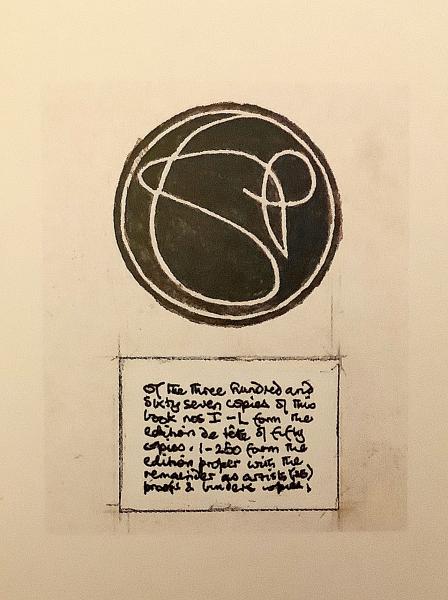 Of the three hundred and
sixty seven copies of this
book nos I - L form the
edition de tête of fifty
copies. 1-250 form the
edition proper with the
remainder as artists (25)
proofs & binders copies.